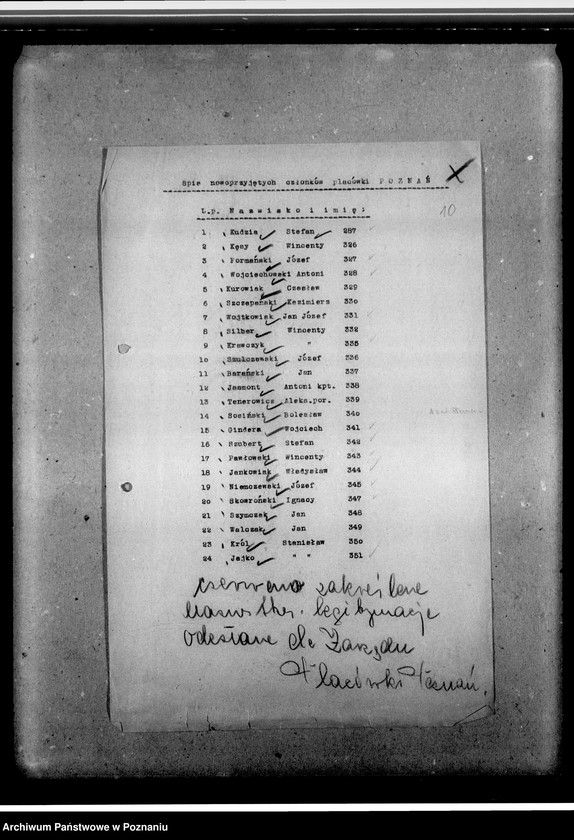 Spis nowoprzyjętych członków placówki POZNAŃ
10
L.p. Nazwisko i imię:
1 Kudzia Stefan 287
2 Kęsy Wincenty 326
3 Formański Józef 327
4 Wojciechowski Antoni 328
5 Kurowiak Czesław 329
6 Szczepański Kazimierz 330
7 Wojtkowiak Jan Józef 331
8 Silber Wincenty 332
9 Krawczyk " 335
10 Szulczewski Józef 336
11 Barański Jan 337
12 Jasmont Antoni kpt. 338
13 Tenerowicz Aleks.por. 339
14 Sosiński Bolesław 340
15 Gindera Wojciech 341
16 Szubert Stefan 342
17 Pawłowski Wincenty 343
18 Jankowiak Władysław 344
19 Niemczewski Józef 345
20 Skowroński Ignacy 347
21 Szymczak Jan 348
22 Walczak Jan 349
23 Król Stanisław 350
24 Jajko " " 351
czerwono zakreślone
legitymacje
odesłane do Zarządu
Placówki Poznań.
Archiwum Państwowe w Poznaniu